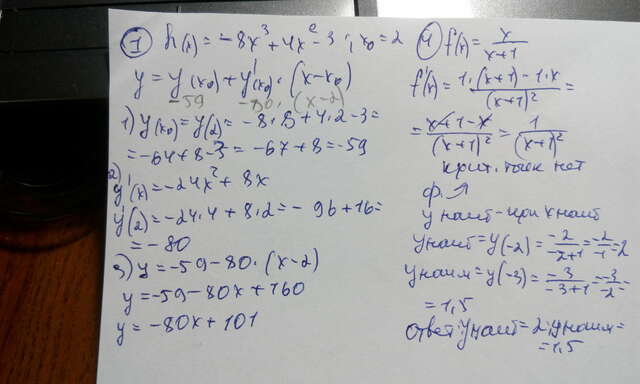 ① h(x) = -8x³ + 4x² - 3 ; x₀ = 2
y = y(x₀) + y'(x₀) · (x - x₀)
-59 -80 · (x-2)
1) y(x₀) = y(2) = -8 · 8 + 4 · 2 - 3 =
= -64 + 8 - 3 = -67 + 8 = -59
2) y'(x) = -24x² + 8x
y'(2) = -24 · 4 + 8 · 2 = -96 + 16 =
= -80
3) y = -59 - 80 · (x - 2)
y = -59 - 80x + 160
y = -80x + 101
④ f(x) = x/(x+1)
f'(x) = (1 · (x+1) - 1 · x)/(x+1)² =
= (x + 1 - x)/(x+1)² = 1/(x+1)²
крит. точек нет
ф. ↗
y наиб - при x наиб
y наиб = y(-2) = -2/(-2+1) = -2/-1 = 2
y наим = y(-3) = -3/(-3+1) = -3/-2 =
= 1,5
Ответ: y наиб = 2; y наим =
= 1,5